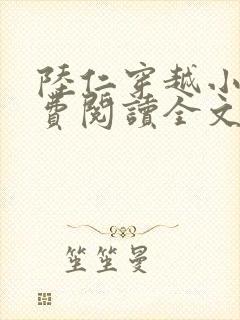 陸仁穿越小
費閱讀全文
笙笙曼